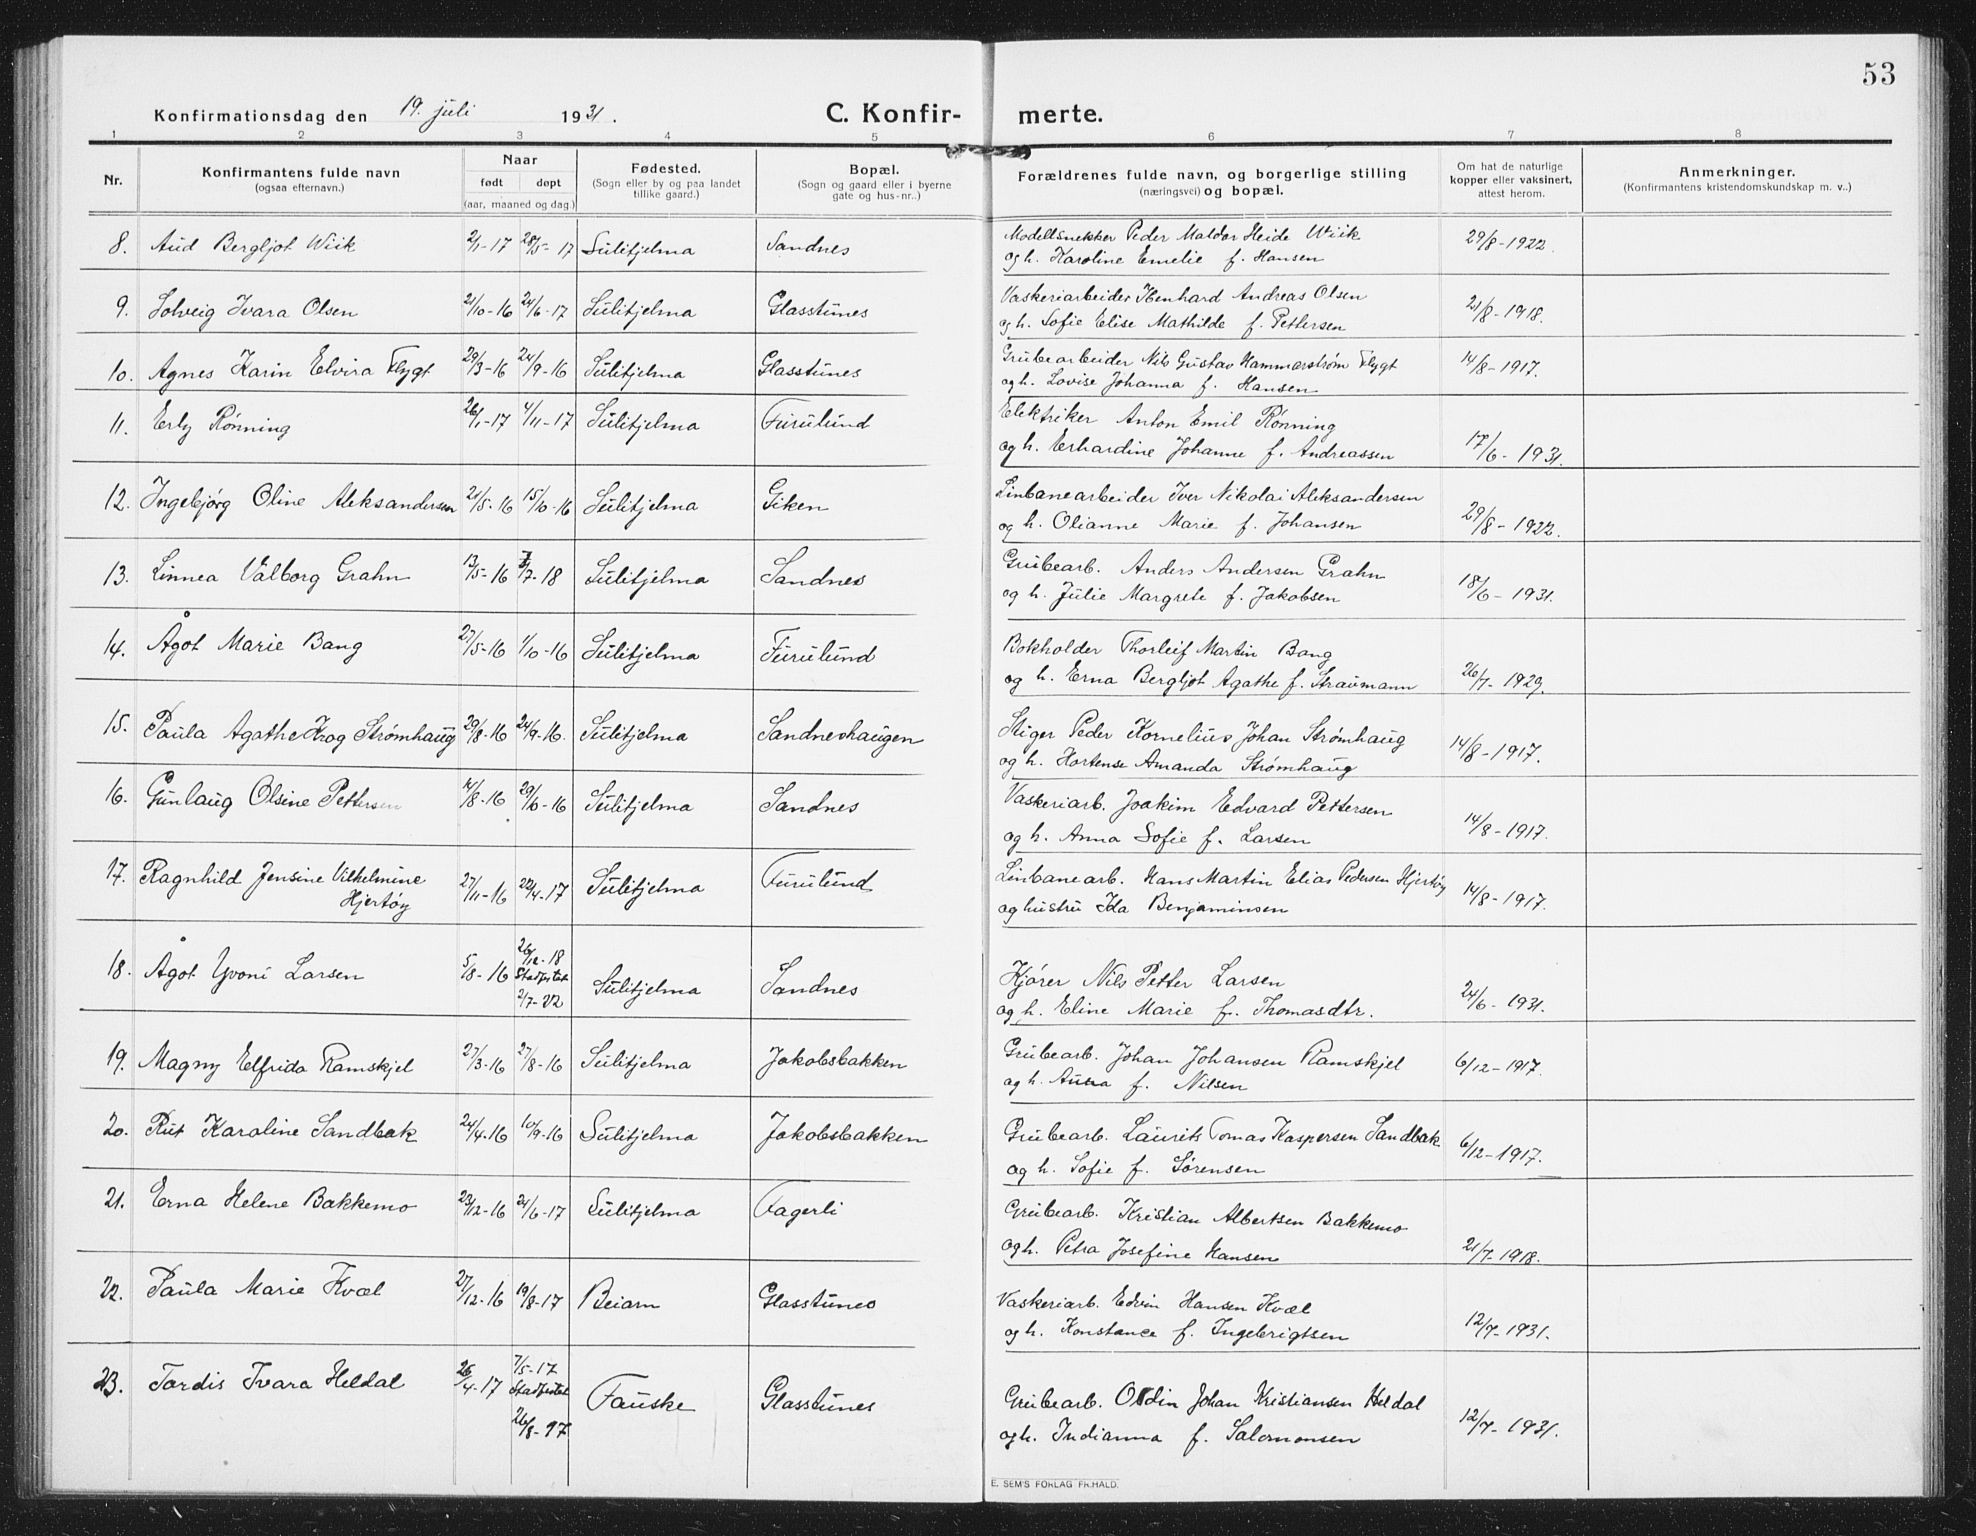 53
Konfirmationsdag den 19. juli 1931.
C. Konfir- merte.
1 2 3 4 5 6 7 8
Nr.
Konfirmantens fulde navn
(ogsaa efternavn.)
Naar
født døpt
(aar, maaned og dag.)
Fødested.
(Sogn eller by og paa landet
tillike gaard.)
Bopæl.
(Sogn og gaard eller i byerne
gate og hus-nr..)
Forældrenes fulde navn, og borgerlige stilling
(næringsvei) og bopæl.
Om hat de naturlige
kopper eller vaksinert,
attest herom.
Anmerkninger.
(Konfirmantens kristendomskundskap m. v..)
8. Aud Bergljot Wiik 2/1-17 28/5-17 Sulitjelma Sandnes Modellsnekker Peder Maldor Heide Wiik 29/8-1922.
og h. Karoline Emelie f. Hansen
9. Solveig Ivara Olsen 21/10-16 24/6-17 Sulitjelma Glasstunes Vaskeriarbeider Henhard Andreas Olsen 21/8-1918.
og h. Sofie Elise Mathilde f. Pettersen
10. Agnes Karin Elvira Flygt 29/3-16 24/9-16 Sulitjelma Glasstunes Grubearbeider Nils Gustav Hammerstrøm Flygt 14/8-1917.
og h. Lovise Johanna f. Hansen
11. Erly Rønning 26/1-17 4/11-17 Sulitjelma Furulund Elektriker Anton Emil Rønning
og h. Erhardine Johanne f. Andreassen 17/6-1931.
12. Ingebjørg Oline Aleksandersen 21/5-16 15/10-16 Sulitjelma Giken Linbanearbeider Iver Nikolai Aleksandersen
og h. Olianne Marie f. Johansen 29/8-1922.
13. Linnea Valborg Grahn 13/5-16 7/7-18 Sulitjelma Sandnes Grubearb. Anders Andersen Grahn
og h. Julie Margrete f. Jakobsen 18/6-1931.
14. Ågot Marie Bang 27/5-16 1/10-16 Sulitjelma Furulund Bokholder Thorleif Martin Bang
og h. Erna Bergljot Agathe f. Straumann 26/7-1929.
15. Paula Agathe Krog Strømhaug 29/8-16 24/9-16. Sulitjelma Sandneshaugen Stiger Peder Kornelius Johan Strømhaug
og h. Hortense Amanda Strømhaug 14/8-1917.
16. Gunlaug Olsine Pettersen 14/8-16 29/10-16 Sulitjelma Sandnes Vaskeriarb. Joakim Edvard Pettersen
og h. Anna Sofie f. Larsen 14/8-1917.
17. Ragnhild Jensine Vilhelmine
Hjertøy 27/11-16 22/4-17 Sulitjelma Furulund Linbanearb. Hans Martin Elias Pedersen Hjertøy
og hustru Ida Benjaminsen 14/8-1917.
18. Ågot Yvoni Larsen 5/8-16 26/12-18
Stadfestet
2/7-22 Sulitjelma Sandnes Kjører Nils Petter Larsen
og h. Eline Marie f. Thomasdtr. 24/6-1931.
19. Magny Elfrida Ramskjel 27/3-16 27/8-16 Sulitjelma Jakobsbakken Grubearb. Johan Johansen Ramskjel
og h. Anna f. Nilsen 6/12-1917.
20. Rut Karoline Sandbak 24/4-16 10/9-16 Sulitjelma Jakobsbakken Grubearb. Laurits Tomas Kaspersen Sandbak
og h. Sofie f. Sørensen 6/12-1917.
21. Erna Helene Bakkemo 23/12-16 24/6-17 Sulitjelma Fagerli Grubearb. Kristian Albertsen Bakkemo
og h. Petra Josefine Hansen 21/7-1918.
22. Paula Marie Kvæl 27/12-16 19/8-17 Beiarn Glasstunes Vaskeriarb. Edvin Hansen Kvæl
og h. Konstance f. Ingebrigtsen 12/7-1931.
23. Tordis Ivara Heldal 26/4-17 7/5-17
Stadfestet
26/8-17 Fauske Glasstunes Grubearb. Odin Johan Kristiansen Heldal
og h. Indianna f. Salomonsen 12/7-1931.
E. SEM'S FORLAG FR.HALD.